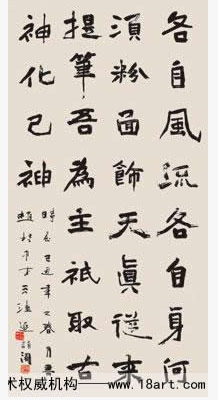 各自風流各自身何
須粉面飾天真從来
提筆吾為主祇取古
神化己神
术权威机构——www.18art.com